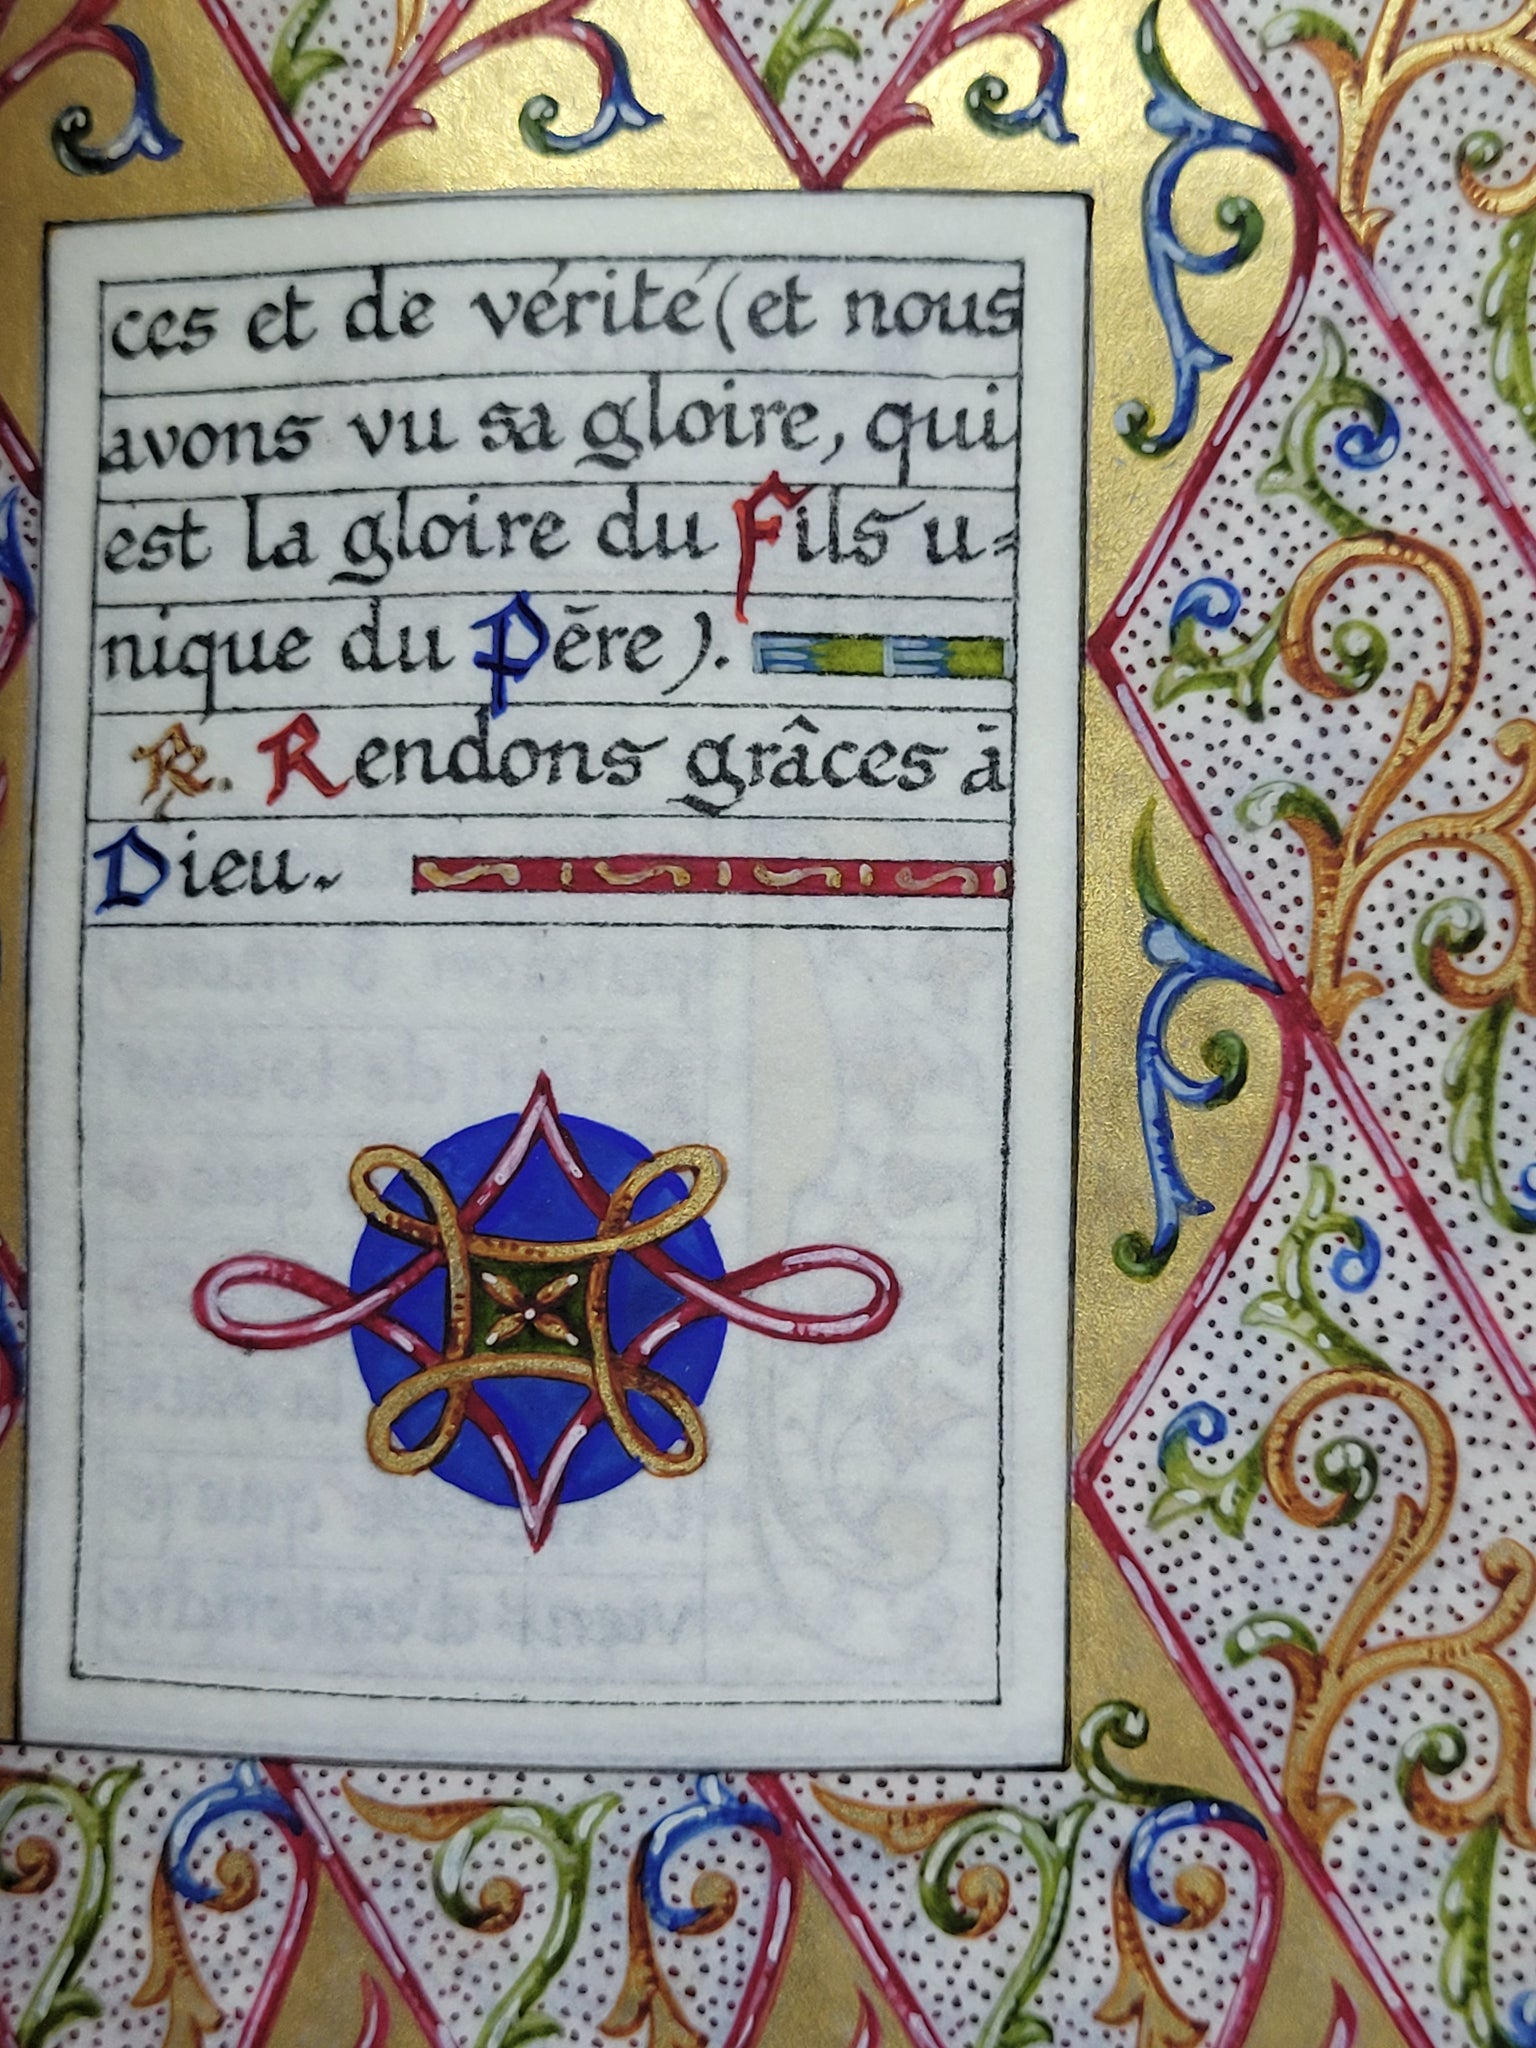 ces et de vérité (et nous
avons vu sa gloire, qui
est la gloire du Fils u=
nique du Père).
R. Rendons grâces à
Dieu.